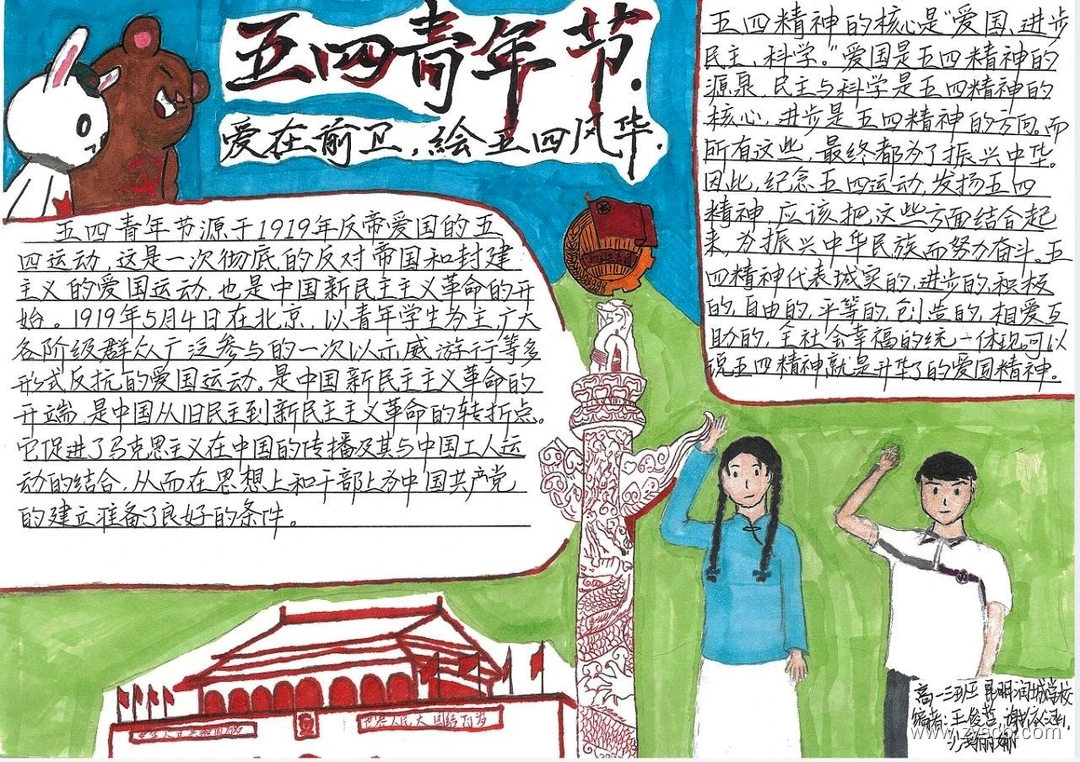 五四青年节.
爱在前卫,绘五四风华.
五四青年节源于1919年反帝爱国的五
四运动,这是一次彻底的反对帝国和封建
主义的爱国运动,也是中国新民主主义革命的开
始。1919年5月4日在北京,以青年学生为主,广大
各阶级群众广泛参与的一次以示威游行等多
形式反抗的爱国运动。是中国新民主主义革命的
开端,是中国从旧民主到新民主主义革命的转折点。
它促进了马克思主义在中国的传播及其与中国工人运
动的结合,从而在思想上和干部上为中国共产党
的建立准备了良好的条件。
五四精神的核心是“爱国、进步
民主、科学。”爱国是五四精神的
源泉、民主与科学是五四精神的
核心,进步是五四精神的方向。而
所有这些,最终都为了振兴中华。
因此,纪念五四运动,发扬五四
精神,应该把这些方面结合起
来,为振兴中华民族而努力奋斗。五
四精神代表诚实的,进步的,积极
的,自由的,平等的,创造的,相爱互
助的,全社会幸福的统一体现,可以
说五四精神就是升华了的爱国精神。
高一三班 昆明润城学校
编者:王俊